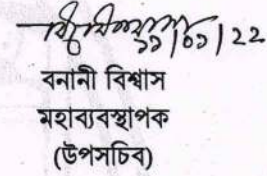 ১১/০১/২২
বনানী বিশ্বাস
মহাব্যবস্থাপক
(উপসচিব)